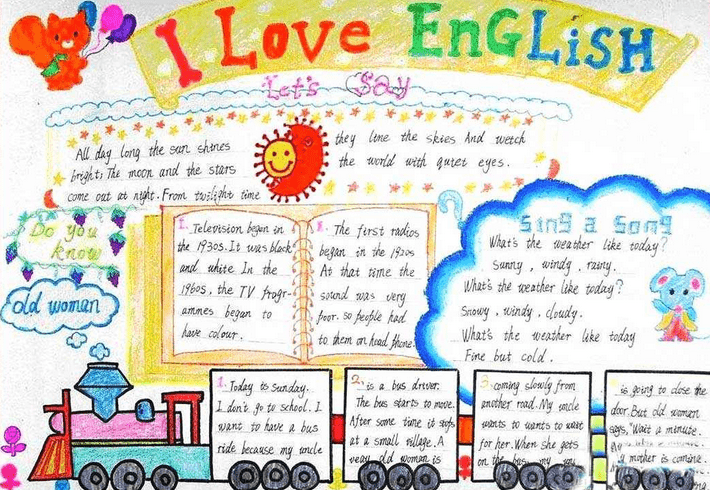 I Love EnGLiSH
Let's Say
All day long the sun shines
bright, The moon and the stars
come out at night. From twilight time
they line the skies And wetch
the world with quiet eyes.
Do you
know
old woman
1. Television began in
the 1930s. It was black
and white In the
1960s, the TV progr-
ammes began to
have colour.
The first radios
began in the 1920s
At that time the
sound was very
poor. so people had
to them on head phone
Sing a Song
What's the weather like today?
Sunny, windy, rainy.
What's the weather like today?
Snowy, windy, cloudy.
What's the weather like today
Fine but cold.
1. Today is Sunday.
I don't go to school. I
want to have a bus
ride because my uncle
2. is a bus driver.
The bus starts to move.
After some time it stops
at a small village. A
very old woman is
3. coming slowly from
another road. My uncle
wants to wants to wait
for her. When she gets
on the bus, my
is going to close the
door. But old woman
says, "Wait a minute.
My mother is comine.